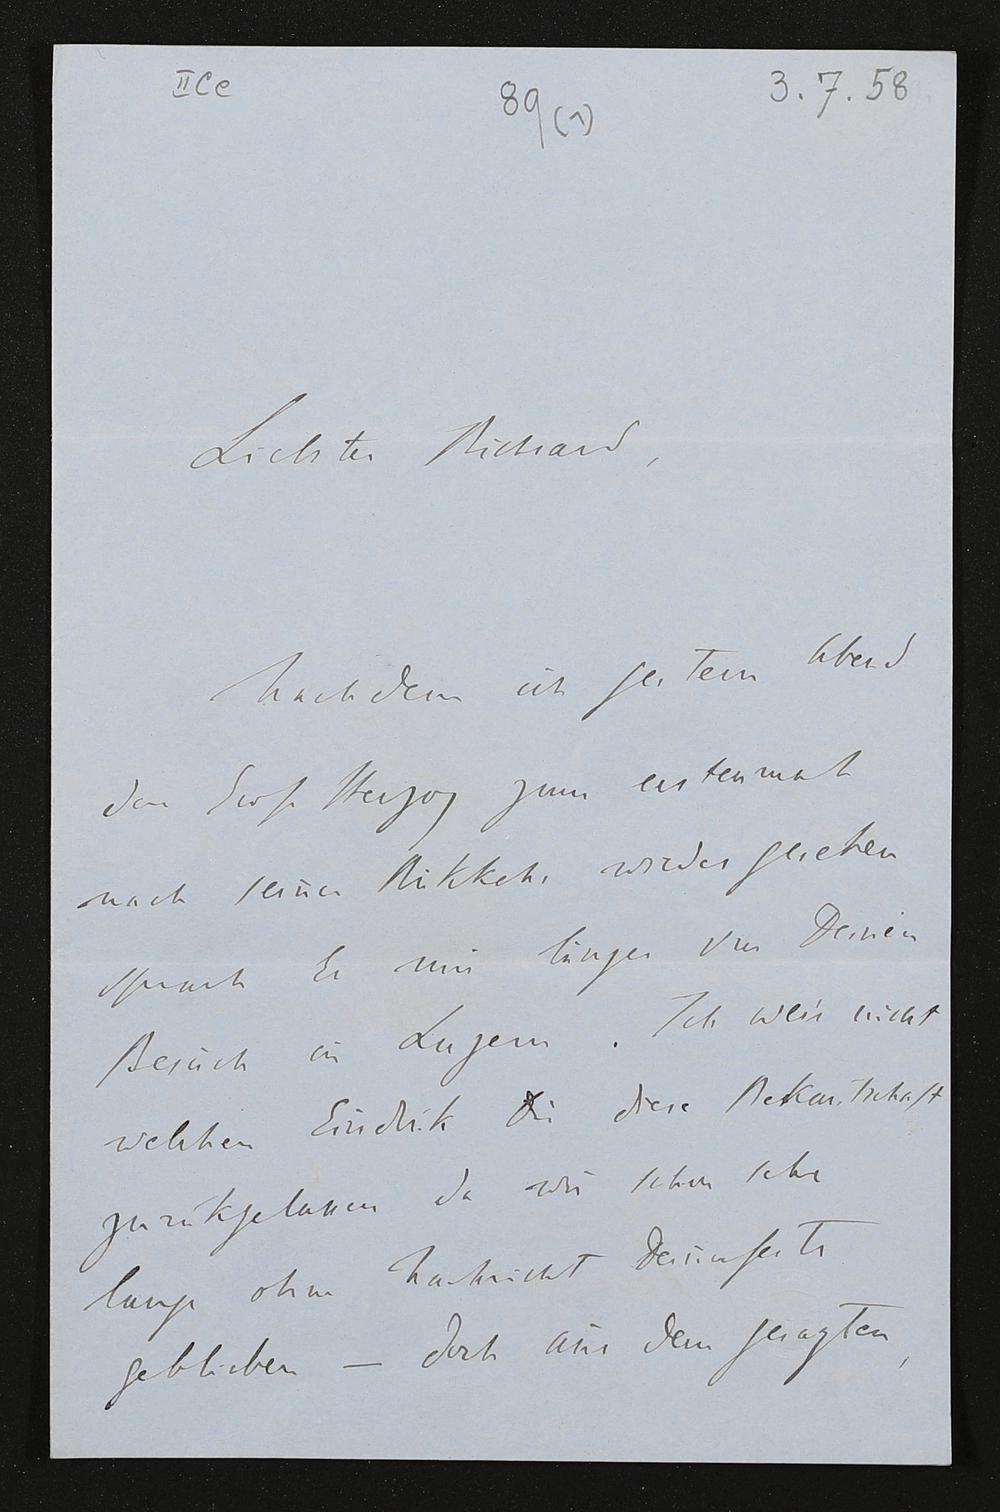 IICe
89(1)
3.7.58
Liebster Richard,
Nachdem ich gestern Abend
den Gross Herzog zum erstenmal
nach seiner Rükkehr wieder gesehen
sprach Er mir länger von Deinem
Besuch in Luzern. Ich weis nicht
welchen Eindruk Dir diese Bekantschaft
zurükgelassen da wir schon sehr
lange ohne Nachricht Deinerseits
geblieben — doch aus dem gesagten,